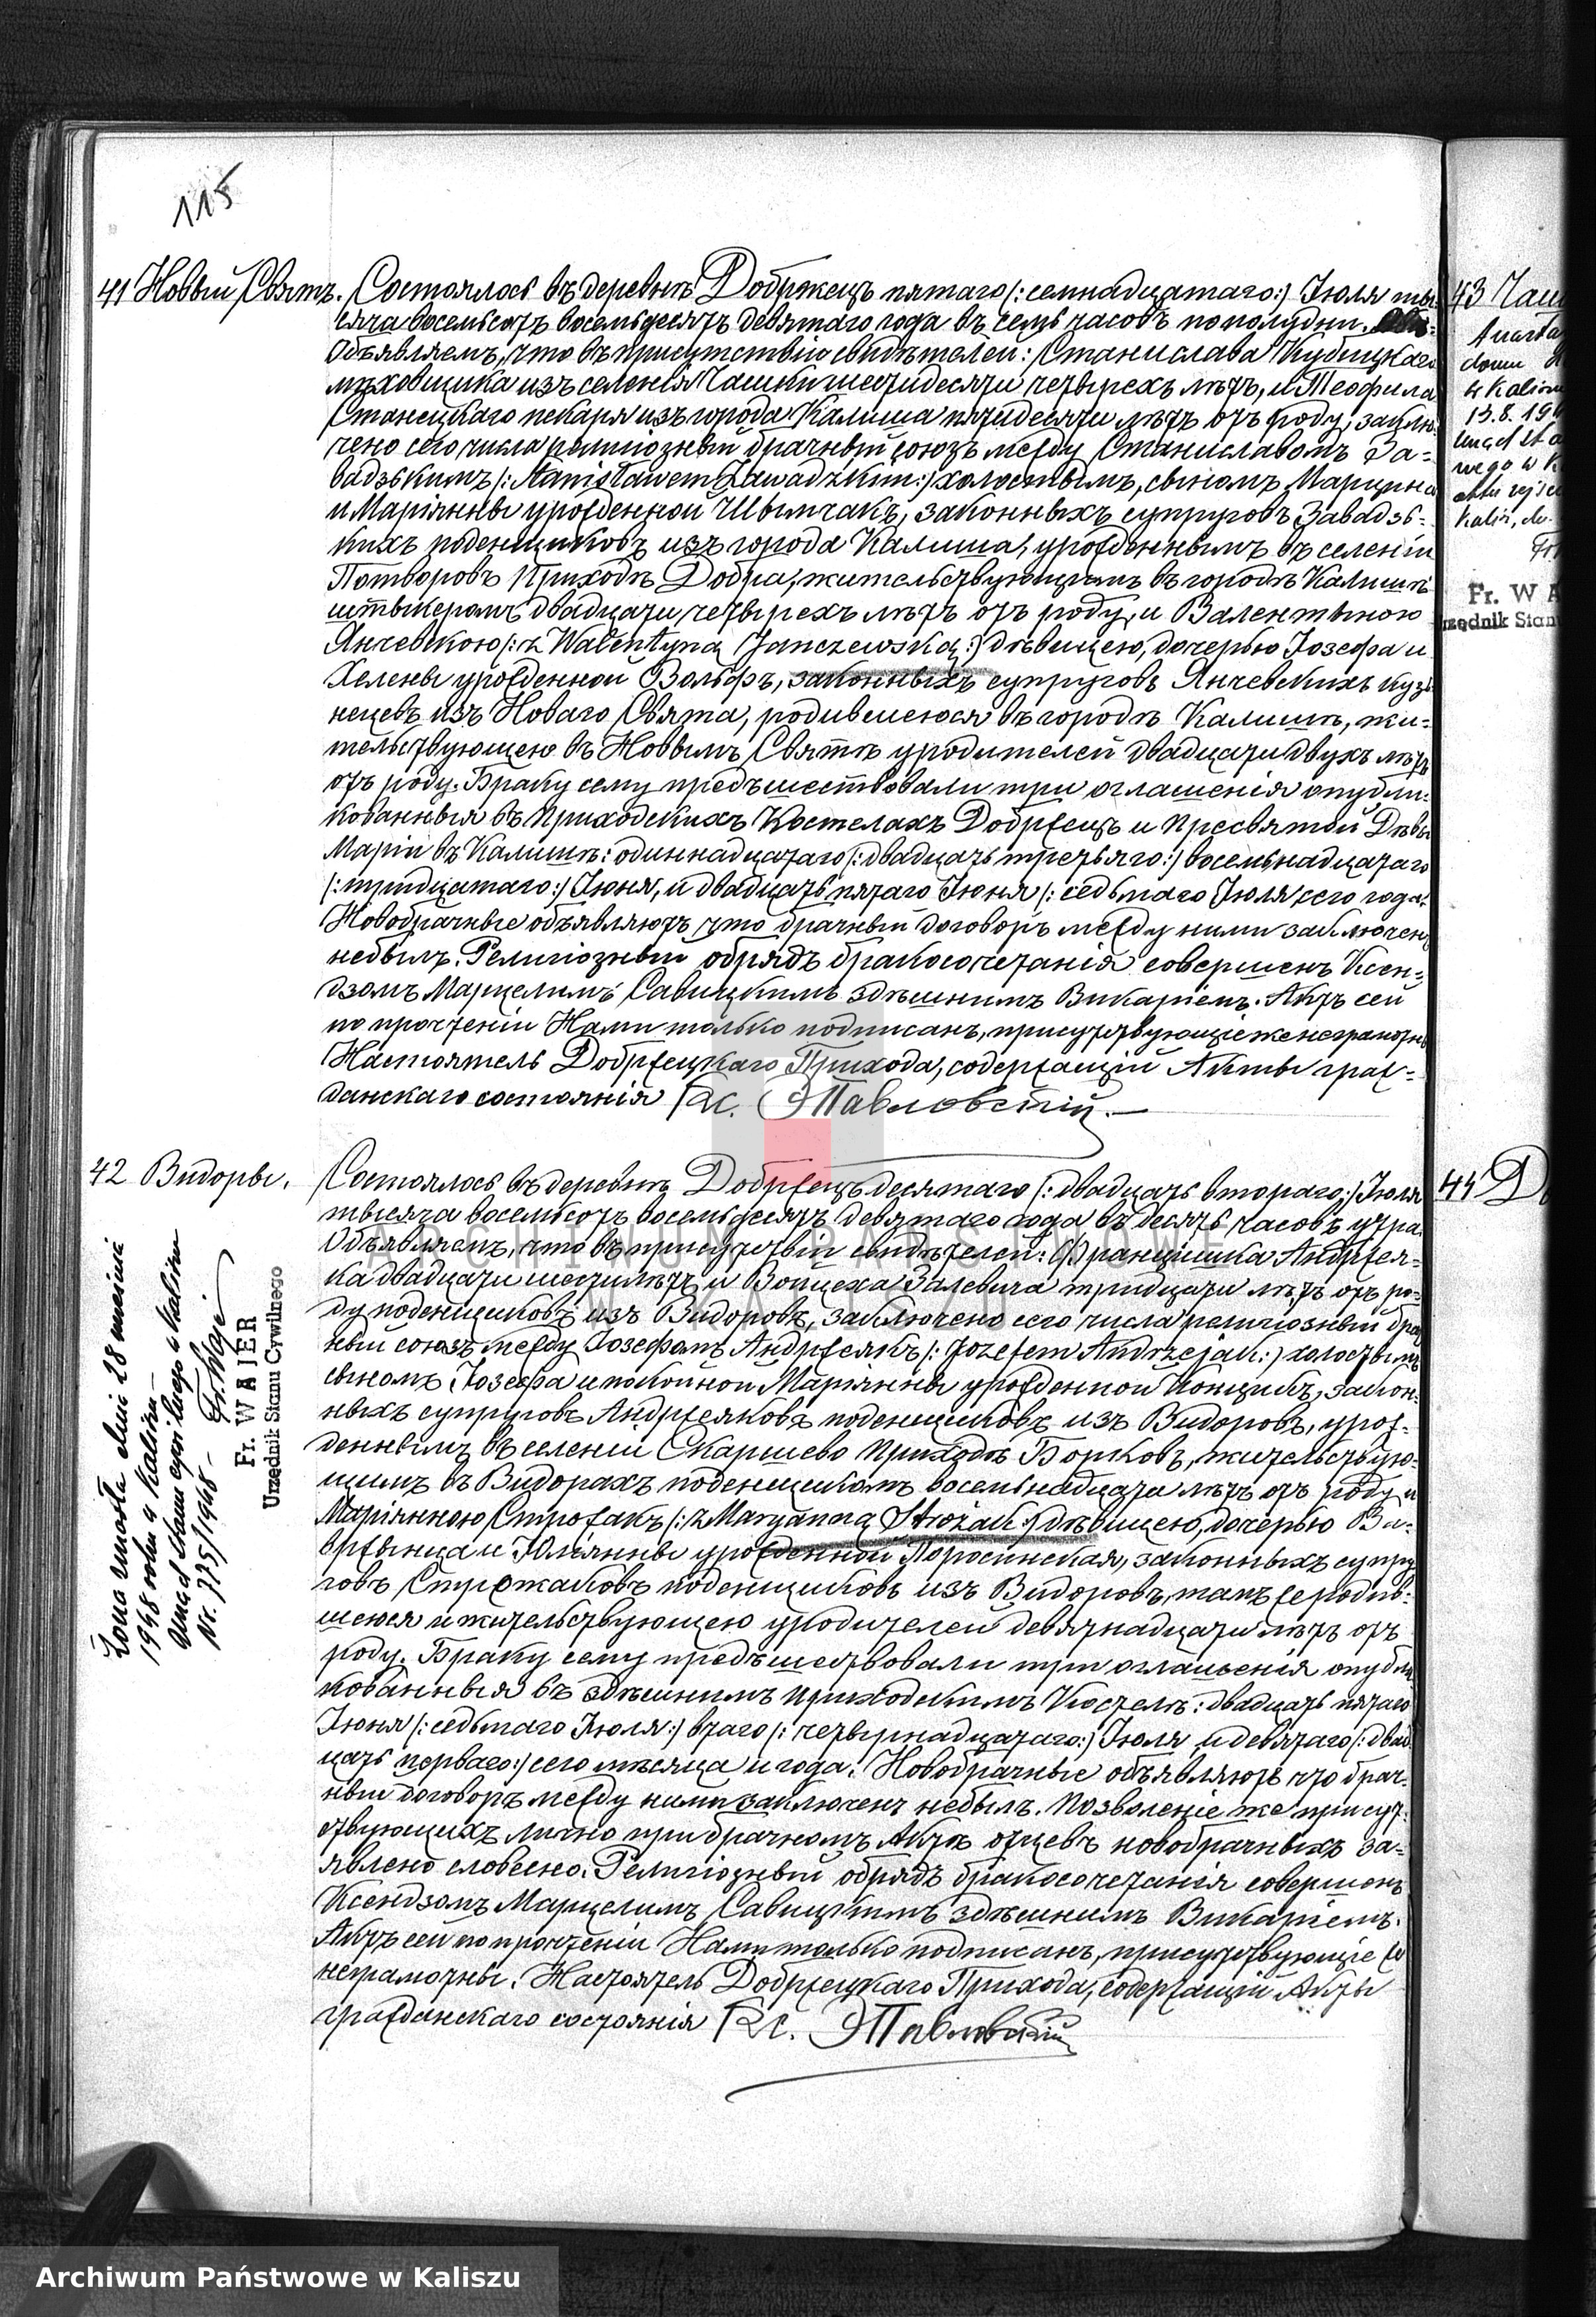 115
41 Новый Святъ.
Состоялось въ деревнѣ Добржецъ пятаго (: семнадцатаго :) Іюля ты-
сяча восемьсотъ восемьдесятъ девятаго года въ семь часовъ по полудни.
Объявляемъ, что въ присутствіи свидѣтелей: Станислава Кубицкаго
мѣховщика изъ селенія Чашки шестидесяти четырехъ лѣтъ, и Теофила
Станецкаго пекаря изъ города Калиша пятидесяти лѣтъ отъ роду, заклю-
чено сего числа религіозный брачный союзъ между Станиславомъ За=
вадзькимъ (: Stanisławem Zawadzkim :) холостымъ, сыномъ Марцина
и Маріянны урожденной Шымчакъ, законныхъ супруговъ Завадзь=
кихъ поденщиковъ изъ города Калиша, урожденнымъ въ селеніи
Потворовъ Приходѣ Добра, жительствующимъ въ городѣ Калишѣ
штыкеромъ двадцати четырехъ лѣтъ отъ роду, и Валентыною
Янчевскою (: z Walentyną Janczewską :) дѣвицею, дочерью Іозефа и
Хелены урожденной Вольфъ, законныхъ супруговъ Янчевскихъ куз-
нецевъ изъ Новаго Свята, родившеюся въ городѣ Калишѣ, жи=
тельствующею въ Новымъ Святѣ у родителей двадцати двухъ лѣтъ
отъ роду. Браку сему предъшествовали три оглашенія опубли=
кованныя въ Приходскихъ Костелахъ Добржецъ и Пресвятой Дѣвы
Маріи въ Калишѣ: одиннадцатаго (: двадцать третьяго :) восемьнадцатаго
(: тридцатаго :) Іюня, и двадцать пятаго Іюня (: седьмаго Іюля сего года.
Новобрачные объявляютъ что брачный договоръ между ними заключенъ
небылъ. Религіозный обрядъ бракосочетанія совершенъ Ксен=
дзомъ Марцелимъ Савицкимъ здѣшнимъ Викаріемъ. Актъ сей
по прочтеніи Нами только подписанъ, присутствующіе же неграмотны
Настоятель Добржецкаго Прихода, содержащій Акты граж=
данскаго состоянія Кс. Э Павловскій.
42 Видоры.
Состоялось въ деревнѣ Добржецъ десятаго (: двадцать втораго :) Іюля
тысяча восемьсотъ восемьдесятъ девятаго года въ десять часовъ утра.
Объявляемъ, что въ присутствіи свидѣтелей: Францишка Андржея=
ка двадцати шести лѣтъ и Войцеха Залевича тридцати лѣтъ отъ ро=
ду поденщиковъ изъ Видоровъ, заключено сего числа религіозный брач
ный союзъ между Іозефомъ Андржеякъ (: Józefem Andrzejak :) холостымъ
сыномъ Іозефа и покойной Маріянны урожденной Концикъ, закон=
ныхъ супруговъ Андржеяковъ поденщиковъ изъ Видоровъ, урож=
деннымъ въ селеніи Скаршево Приходѣ Борковъ, жительствую=
щимъ въ Видорахъ поденщикомъ восемьнадцати лѣтъ отъ роду и
Маріянною Строжакъ (: z Maryanną Strożak :) дѣвицею, дочерью Ва=
вржынца и Юліянны урожденной Поросинская, законныхъ супру
говъ Строжаковъ поденщиковъ изъ Видоровъ, тамъ же родив=
шеюся и жительствующею у родителей девятнадцати лѣтъ отъ
роду. Браку сему предъшествовали три оглашенія опубли
кованныя въ здѣшнимъ Приходскимъ Костелѣ: двадцать пятаго
Іюня (: седьмаго Іюля :) втаго (: четырнадцатаго :) Іюля и девятаго (: двад
цать перваго :) сего мѣсяца и года. Новобрачные объявляютъ что брач=
ный договоръ между ними заключенъ небылъ. Позволеніе же присут=
ствующихъ лично при брачномъ Актѣ отцевъ новобрачныхъ за=
явлено словесно. Религіозный обрядъ бракосочетанія совершенъ
Ксендзомъ Марцелимъ Савицкимъ здѣшнимъ Викаріемъ.
Актъ сей по прочтеніи Нами только подписанъ, присутствующіе же
неграмотны. Настоятель Добржецкаго Прихода, содержащій Акты
гражданскаго состоянія Кс. Э Павловскій
Żona zmarła dnia 28 miesiąca
1948 roku w Kaliszu –
Urząd Stanu Cywilnego w Kaliszu
Nr. 735/1948 – Fr. Wajer
Fr. WAJER
Urzędnik Stanu Cywilnego
43 Чаш
w Kalisz
13.8.19
Urząd
wego w K
Kalisz, dn.
Fr. WA
rzędnik Stan
44 Д
ARCHIWUM PAŃSTWOWE
W KALISZU
Archiwum Państwowe w Kaliszu